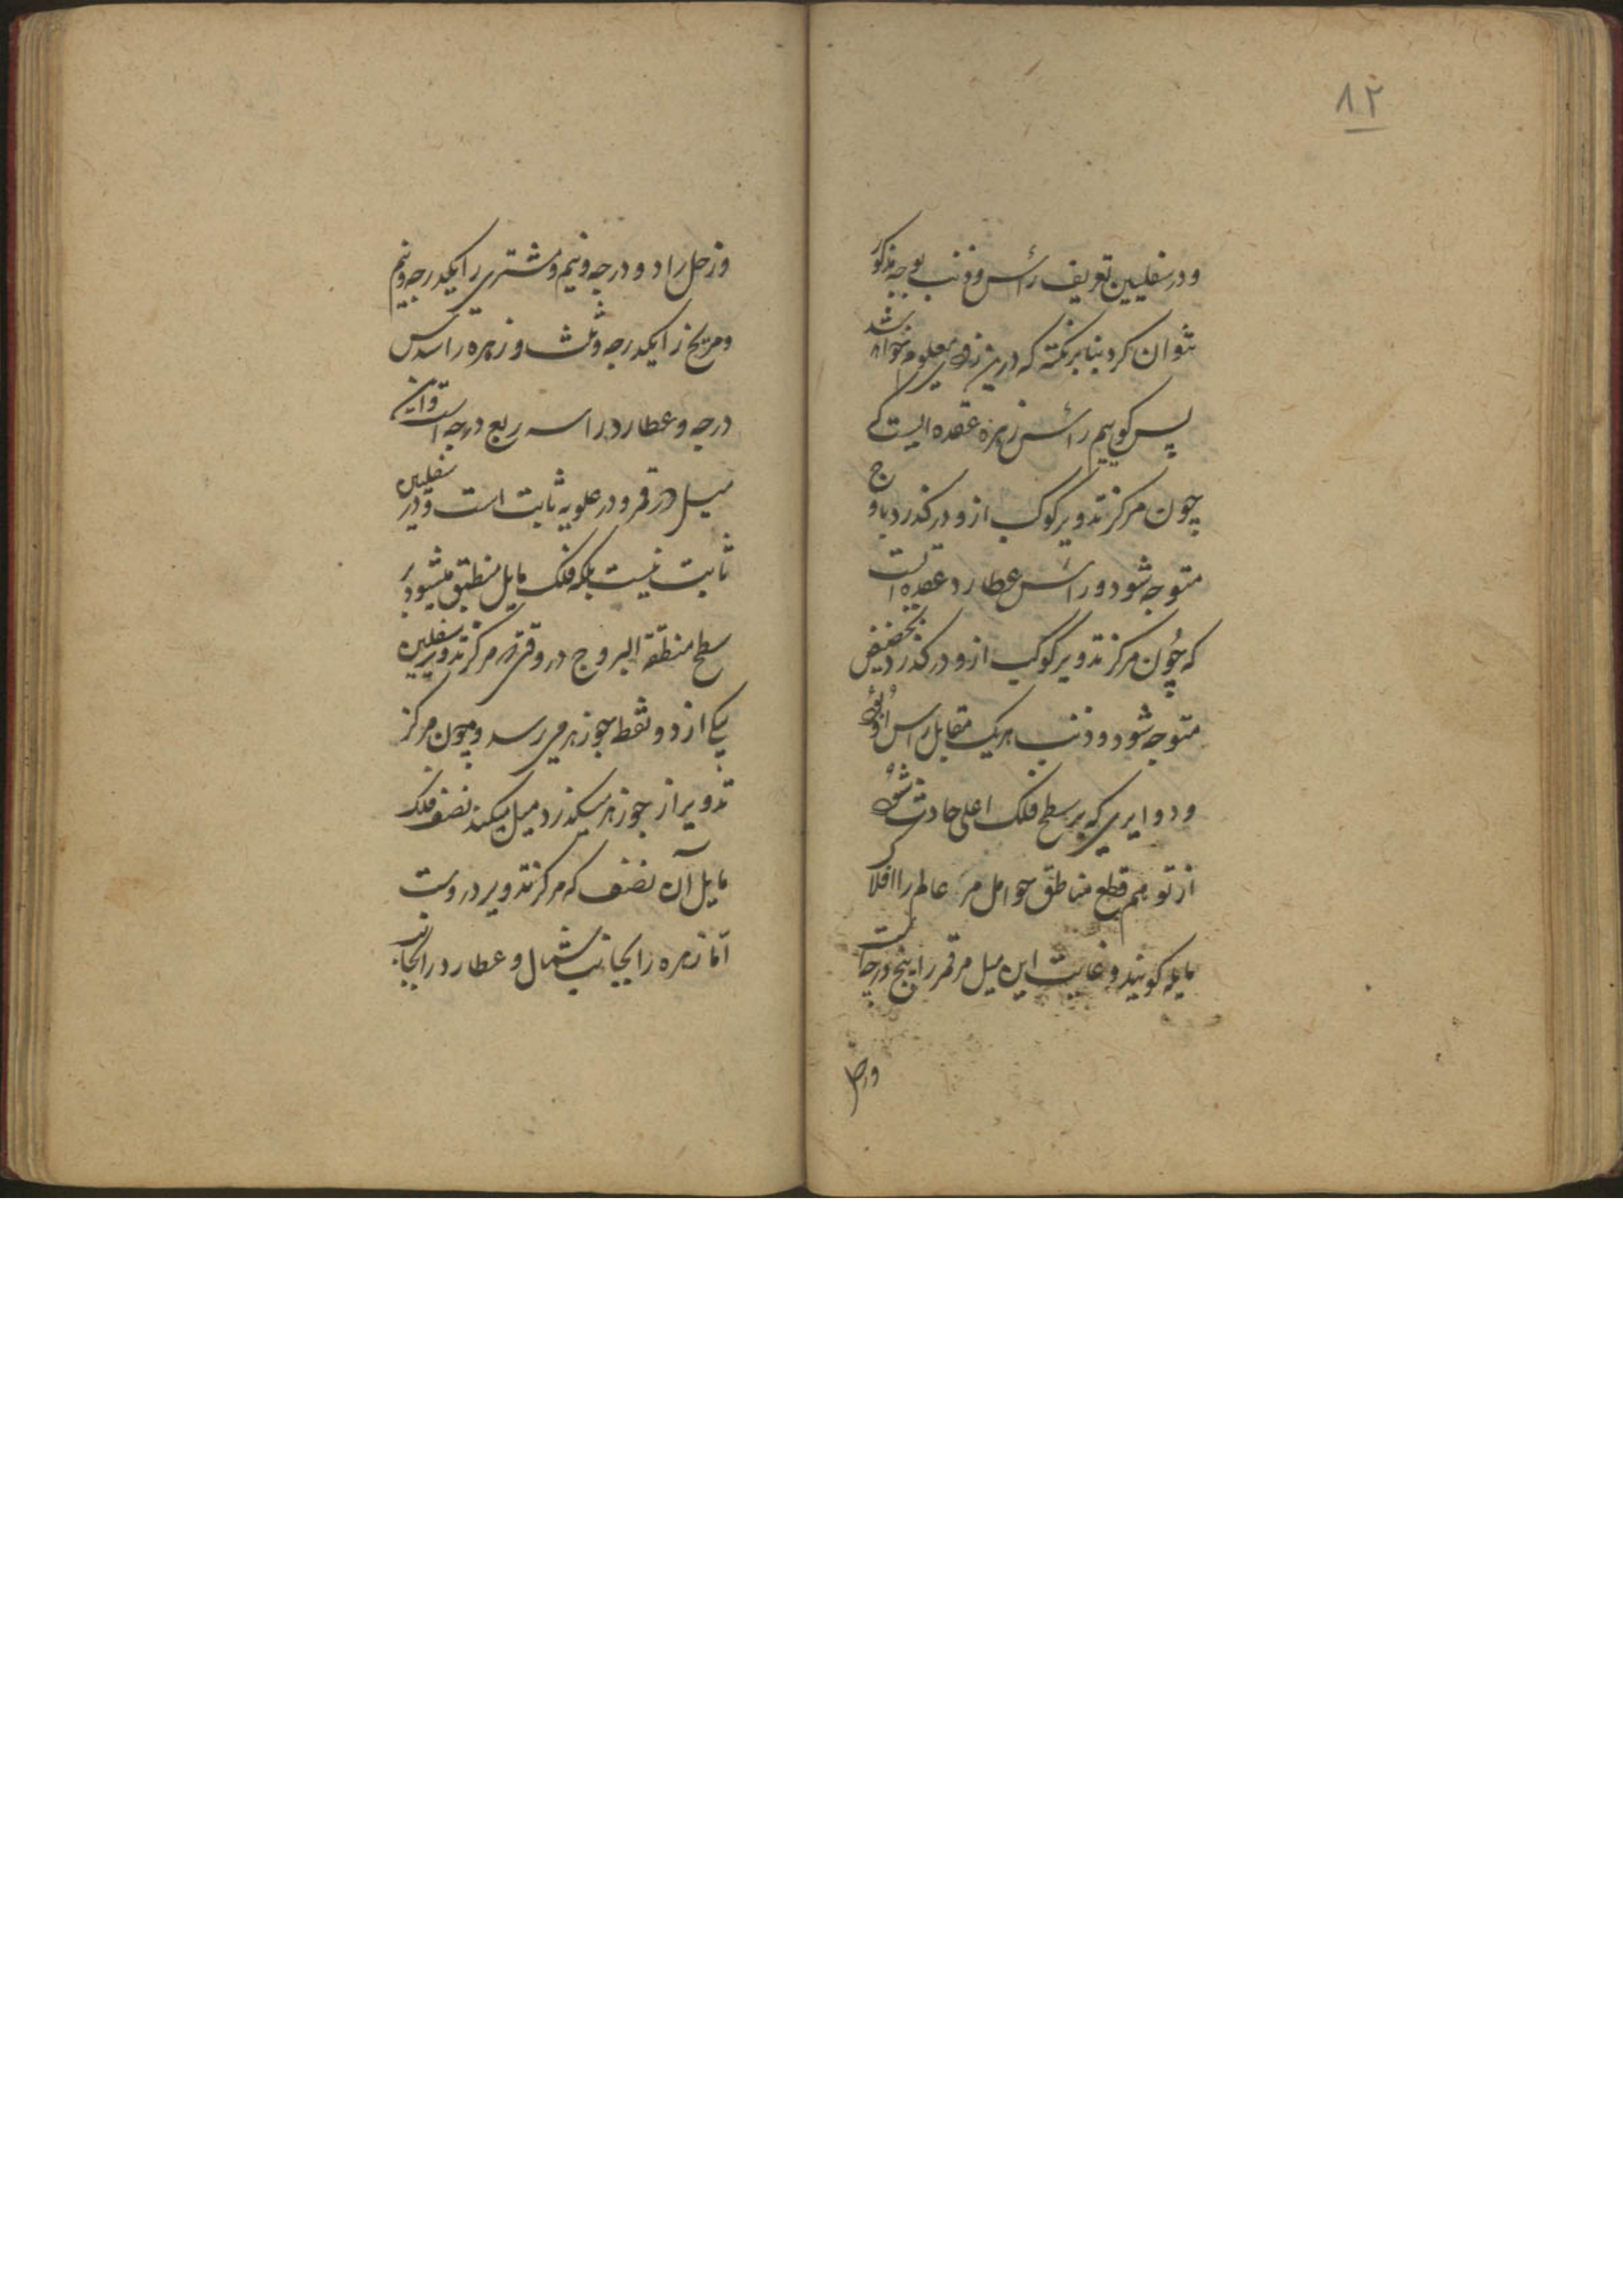 ۸۲
و در سفلیین تعریف رأس و ذنب بوجه مذکور
نتوان کرد بنا بر نکته که درین زودی معلوم خواهد شد
پس گوییم رأس زهره عقده ایست که
چون مرکز تدویر کوکب ازو درگذرد باوج
متوجه شود و رأس عطارد عقده است
که چون مرکز تدویر کوکب ازو درگذرد بحضیض
متوجه شود و ذنب هر یک مقابل رأس او بود
و دوایری که بر سطح فلک اعلی حادث شود
از توهم قطع مناطق حوامل مر عالم را افلاک
مایله گویند و غایت این میل مر قمر را پنج درجه است
و زحل
و زحل را دو درجه و نیم و مشتری را یکدرجه و نیم
و مریخ را یکدرجه و ثلث و زهره را سدس
درجه و عطارد را سه ربع درجه است و این
میل در قمر و در علویه ثابت است و در سفلیین
ثابت نیست بلکه فلک مایل منطبق میشود بر
سطح منطقة البروج در وقتی که مرکز تدویر سفلیین
یکی از دو نقطه جوزهر می رسد و چون مرکز
تدویر از جوزهر میگذرد میل میکند نصف فلک
مایل آن نصف که مرکز تدویر دروست
اما زهره را بجانب شمال و عطارد را بجانب